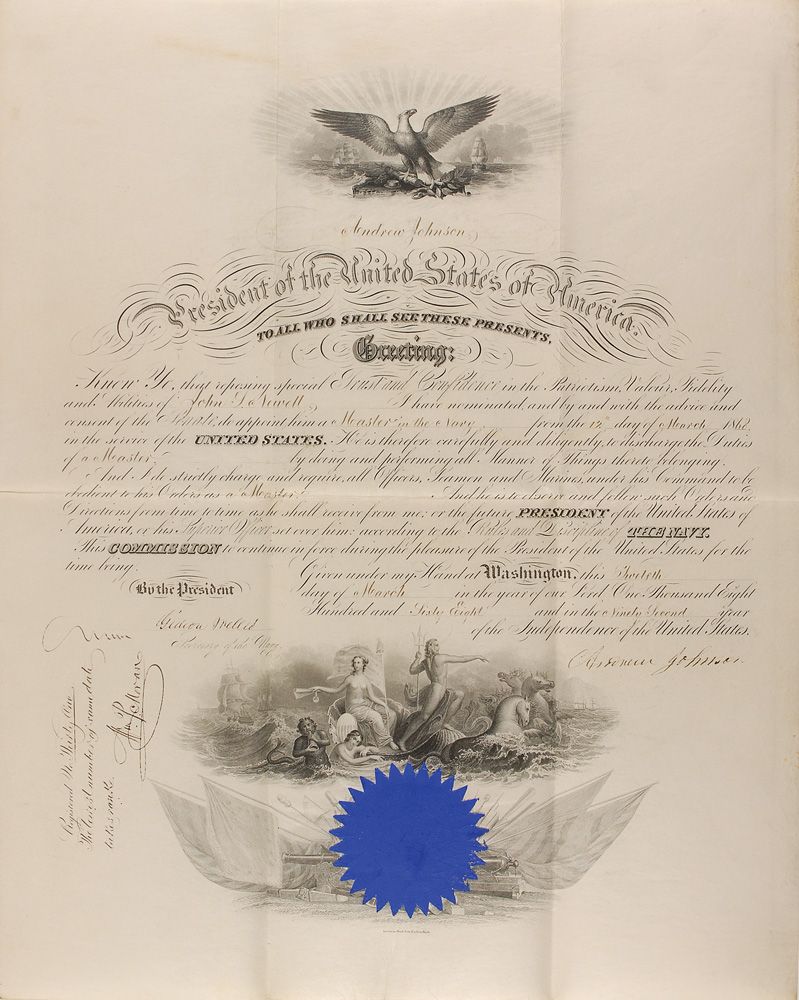 Andrew Johnson,
President of the United States of America.
TO ALL WHO SHALL SEE THESE PRESENTS,
Greeting:
Know Ye, that reposing special Trust and Confidence in the Patriotism, Valour, Fidelity
and Abilities of John D. Newell, I have nominated, and by and with the advice and
consent of the Senate, do appoint him a Master in the Navy from the 12th day of March 1868,
in the service of the UNITED STATES. He is therefore carefully and diligently, to discharge the Duties
of a Master. by doing and performing all Manner of Things thereto belonging.
And I do strictly charge and require, all Officers, Seamen and Marines, under his Command to be
obedient to his Orders as a Master. And he is to observe and follow such Orders and
Directions from time to time as he shall receive from me; or the future PRESIDENT of the United States of
America, or his Superior Officer set over him; according to the Rules and Discipline of THE NAVY.
This COMMISSION to continue in force during the pleasure of the President of the United States for the
time being.
Given under my Hand at Washington, this Twelfth
day of March in the year of our Lord One Thousand Eight
Hundred and Sixty Eight and in the Ninety Second year
of the Independence of the United States.
By the President
Andrew Johnson
Gideon Welles
Secretary of the Navy
Registered No Thirty One
The lowest number of same date
takes rank